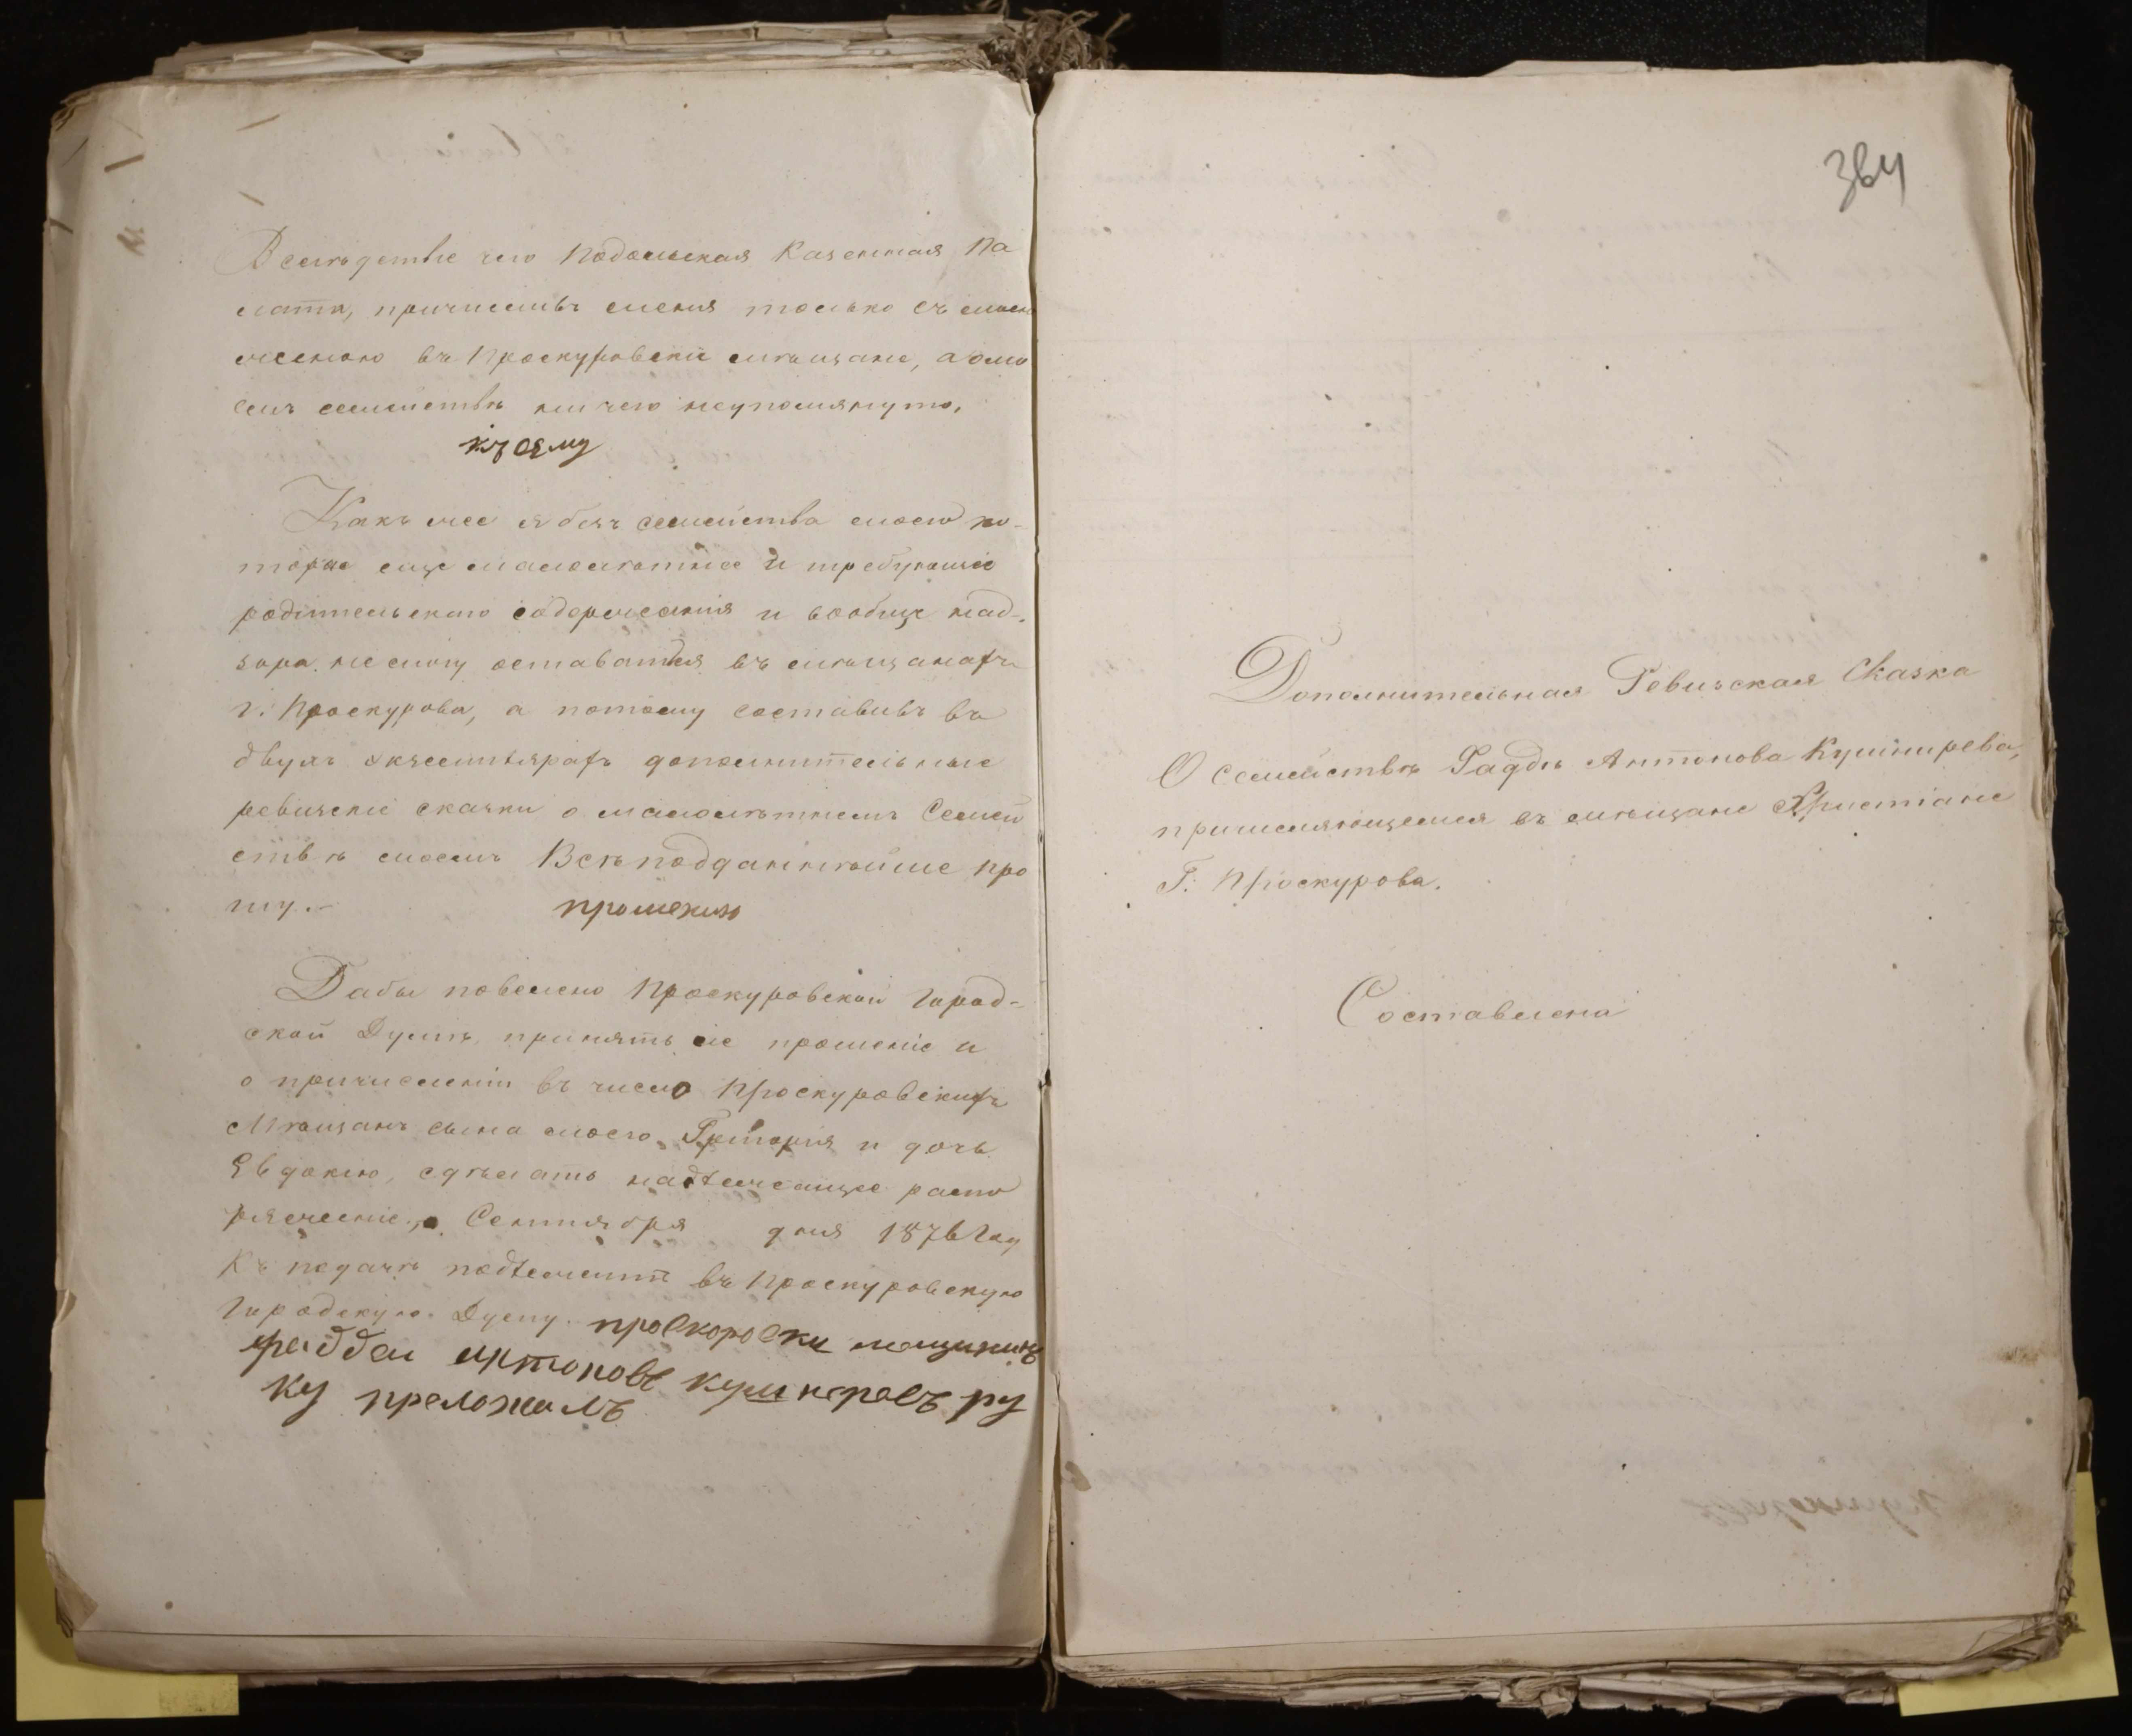 Вслѣдствіе чего Подольская Казенная Па
лата, причисливъ меня только съ моею
женою въ Проскуровскіе мѣщане, а о мо
емъ семействѣ ничего неупомянуто,
къ сему
Какъ же я безъ семейства моего ко-
торые еще малолѣтные и требующіе
родительскаго содержанія и вообще над-
зора не могу оставатся въ мѣщанахъ
г. Проскурова, а потому составивъ въ
двухъ экземплярахъ дополнительные
ревизскіе сказки о малолѣтнемъ Семей
ствѣ моемъ Всѣподданнѣйше про
шу.
прошению
Дабы повелено Проскуровской Город-
ской Думѣ, принять сіе прошеніе и
о причисленіи въ число Проскуровскихъ
Мѣщанъ сына моего Григорія и дочь
Евдокію, сдѣлать надлежащее распо
ряженіе, Сентября дня 1876 Год
Къ подачѣ подлежитъ въ Проскуровскую
Городскую Думу. проскоровки мещининъ
фаддеи антоновъ кушнеревъ ру
ку преложилъ
364
Дополнительная Ревизская Сказка
О семействѣ Фаддѣ Антонова Кушнирева,
причисляющемся въ мѣщане Христіане
Г. Проскурова.
Составлена